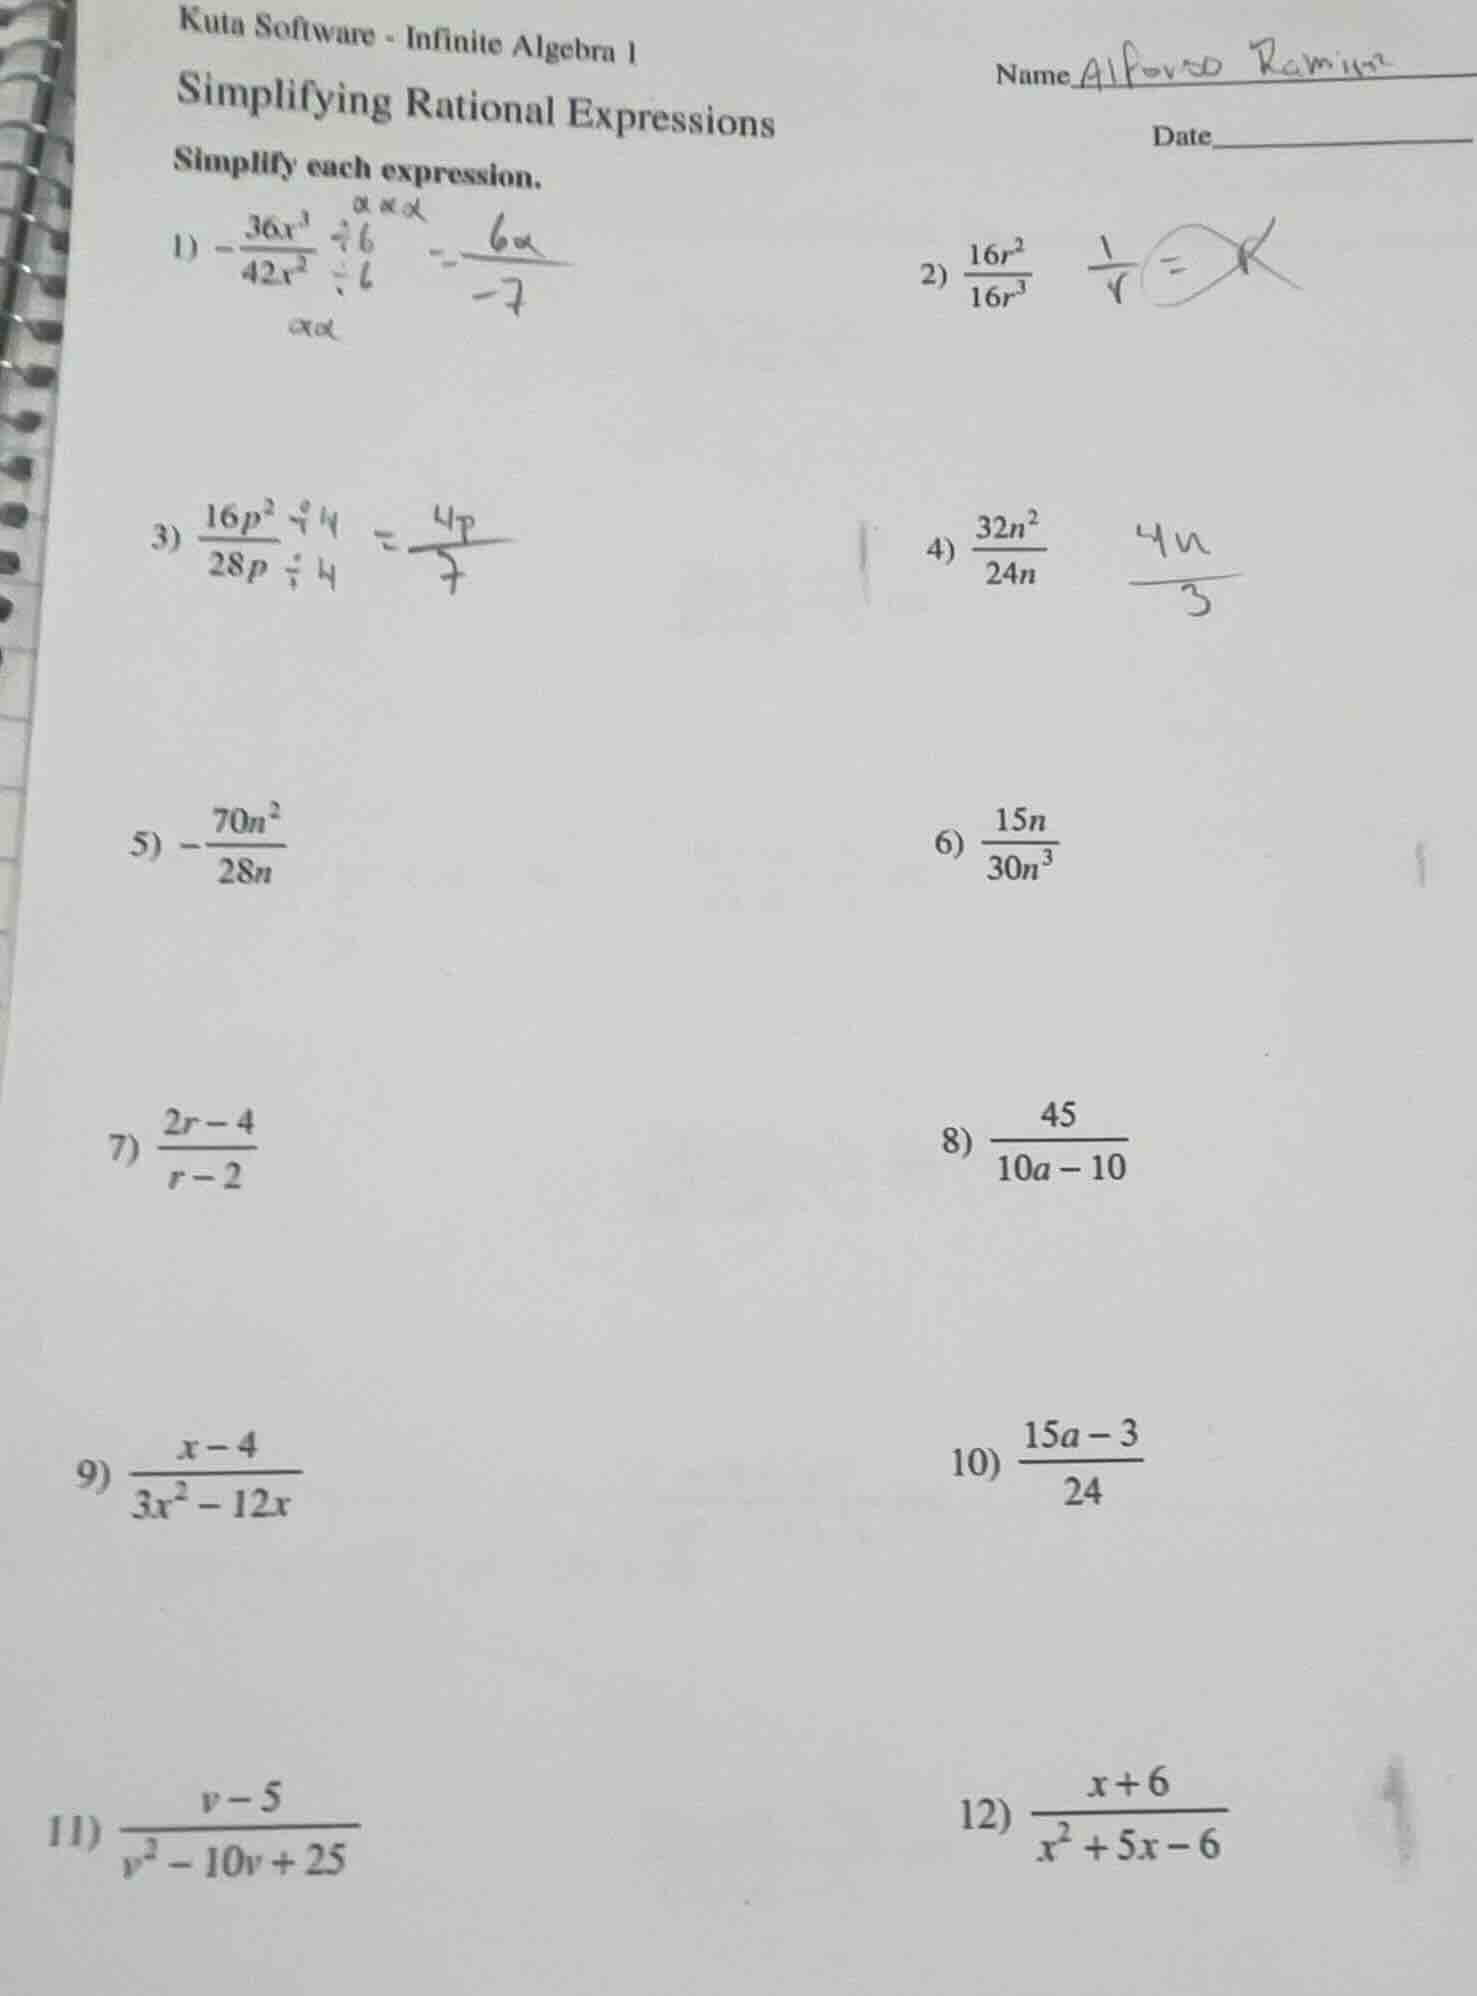 Kuta Software - Infinite Algebra 1
Name Alfonso Ramirez
Simplifying Rational Expressions
Date
Simplify each expression.
1) -36x³/42x² ÷6/÷6 = 6x/-7
xxx
xx
2) 16r²/16r³ 1/r =
3) 16p²/28p ÷4/÷4 = 4p/7
4) 32n²/24n 4n/3
5) -70n²/28n
6) 15n/30n³
7) (2r - 4)/(r - 2)
8) 45/(10a - 10)
9) (x - 4)/(3x² - 12x)
10) (15a - 3)/24
11) (v - 5)/(v² - 10v + 25)
12) (x + 6)/(x² + 5x - 6)